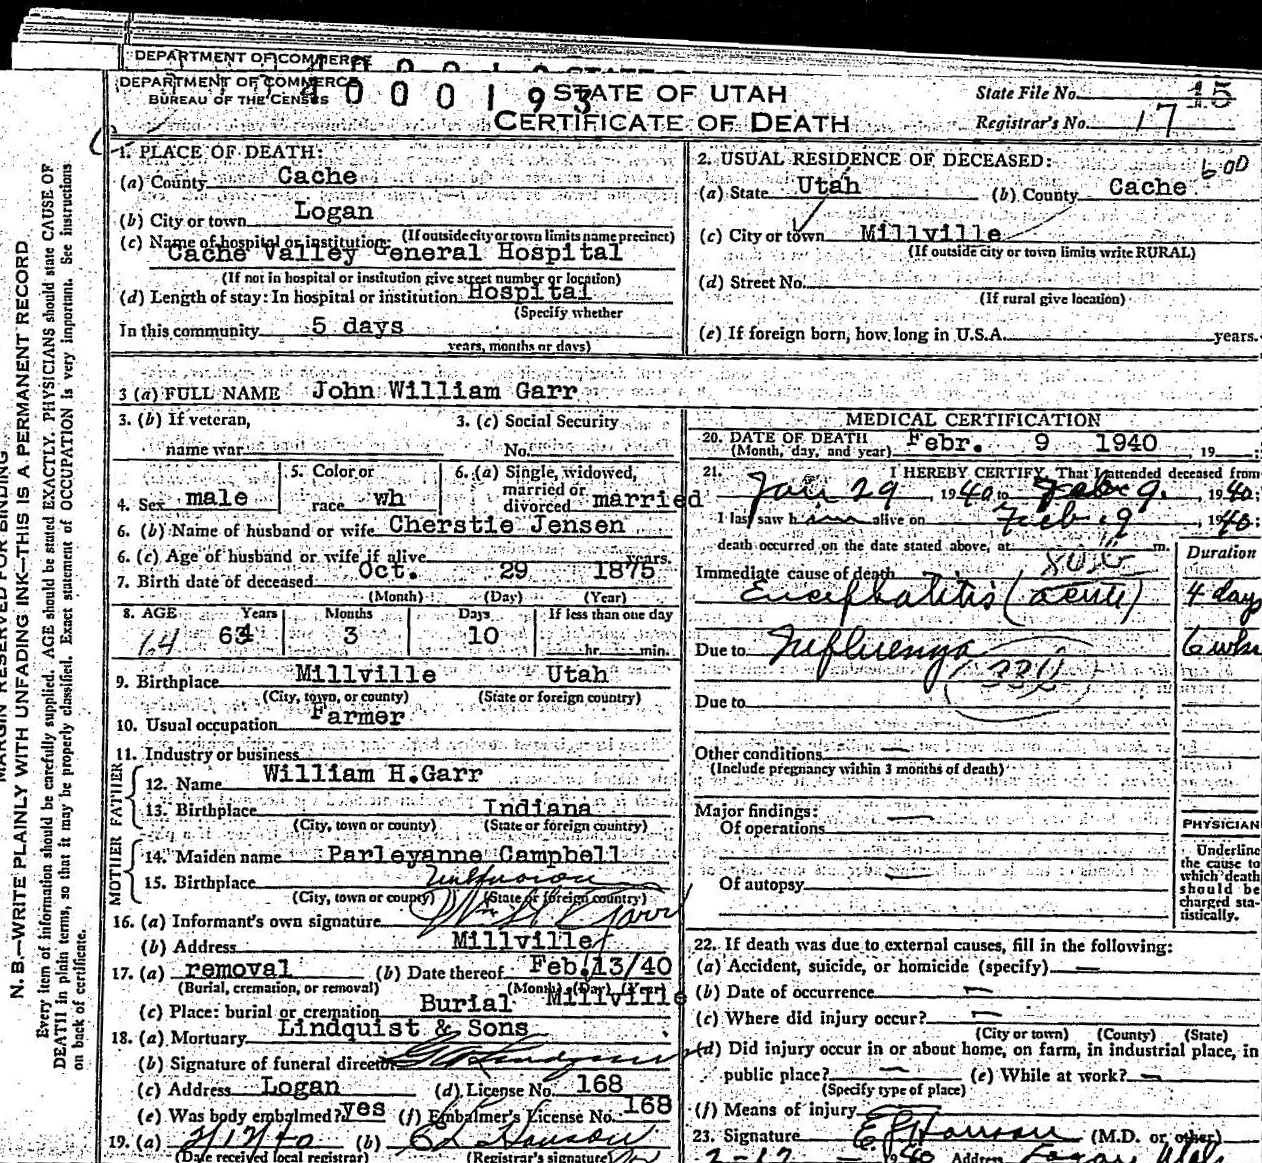 DEPARTMENT OF COMMERCE
DEPARTMENT OF COMMERCE
BUREAU OF THE CENSUS
4000193
STATE OF UTAH
CERTIFICATE OF DEATH
State File No. 15
Registrar's No. 17
1. PLACE OF DEATH:
(a) County Cache
(b) City or town Logan
(If outside city or town limits name precinct)
(c) Name of hospital or institution:
Cache Valley General Hospital
(If not in hospital or institution give street number or location)
(d) Length of stay: In hospital or institution Hospital
(Specify whether
In this community 5 days
years, months or days)
2. USUAL RESIDENCE OF DECEASED: 600
(a) State Utah (b) County Cache
(c) City or town Millville
(If outside city or town limits write RURAL)
(d) Street No.
(If rural give location)
(e) If foreign born, how long in U.S.A. years.
3 (a) FULL NAME John William Garr
3. (b) If veteran, 3. (c) Social Security
name war No.
4. Sex male 5. Color or race wh 6. (a) Single, widowed, married or divorced married
6. (b) Name of husband or wife Cherstie Jensen
6. (c) Age of husband or wife if alive years.
7. Birth date of deceased Oct. 29 1875
(Month) (Day) (Year)
8. AGE Years Months Days If less than one day
64 64 3 10 hr. min.
9. Birthplace Millville Utah
(City, town, or county) (State or foreign country)
10. Usual occupation Farmer
11. Industry or business
FATHER
12. Name William H.Garr
13. Birthplace Indiana
(City, town or county) (State or foreign country)
MOTHER
14. Maiden name Parleyanne Campbell
15. Birthplace unknown
(City, town or county) (State or foreign country)
16. (a) Informant's own signature Wm H Garr
(b) Address Millville
17. (a) removal (b) Date thereof Feb. 13/40
(Burial, cremation, or removal) (Month) (Day) (Year)
(c) Place: burial or cremation Burial Millville
18. (a) Mortuary Lindquist & Sons
(b) Signature of funeral director
(c) Address Logan (d) License No. 168
(e) Was body embalmed? yes (f) Embalmer's License No. 168
19. (a) (b)
(Date received local registrar) (Registrar's signature)
MEDICAL CERTIFICATION
20. DATE OF DEATH Febr. 9 1940, 19
(Month, day, and year)
21. I HEREBY CERTIFY, That I attended deceased from
Jan 29, 1940 to Feb 9, 1940;
I last saw him alive on Feb. 9, 1940;
death occurred on the date stated above, at m.
Duration
Immediate cause of death
Encephalitis (acute) 4 days
Due to Influenza 6 wks
Due to
Other conditions —
(Include pregnancy within 3 months of death)
Major findings:
Of operations —
Of autopsy —
PHYSICIAN
Underline
the cause to
which death
should be
charged sta-
tistically.
22. If death was due to external causes, fill in the following:
(a) Accident, suicide, or homicide (specify) —
(b) Date of occurrence —
(c) Where did injury occur? —
(City or town) (County) (State)
(d) Did injury occur in or about home, on farm, in industrial place, in
public place? — (e) While at work? —
(Specify type of place)
(f) Means of injury
23. Signature (M.D. or other)
2-12 1940 Address Logan Utah
MARGIN RESERVED FOR BINDING
N. B.—WRITE PLAINLY WITH UNFADING INK—THIS IS A PERMANENT RECORD
Every item of information should be carefully supplied. AGE should be stated EXACTLY. PHYSICIANS should state CAUSE OF
DEATH in plain terms, so that it may be properly classified. Exact statement of OCCUPATION is very important. See instructions
on back of certificate.